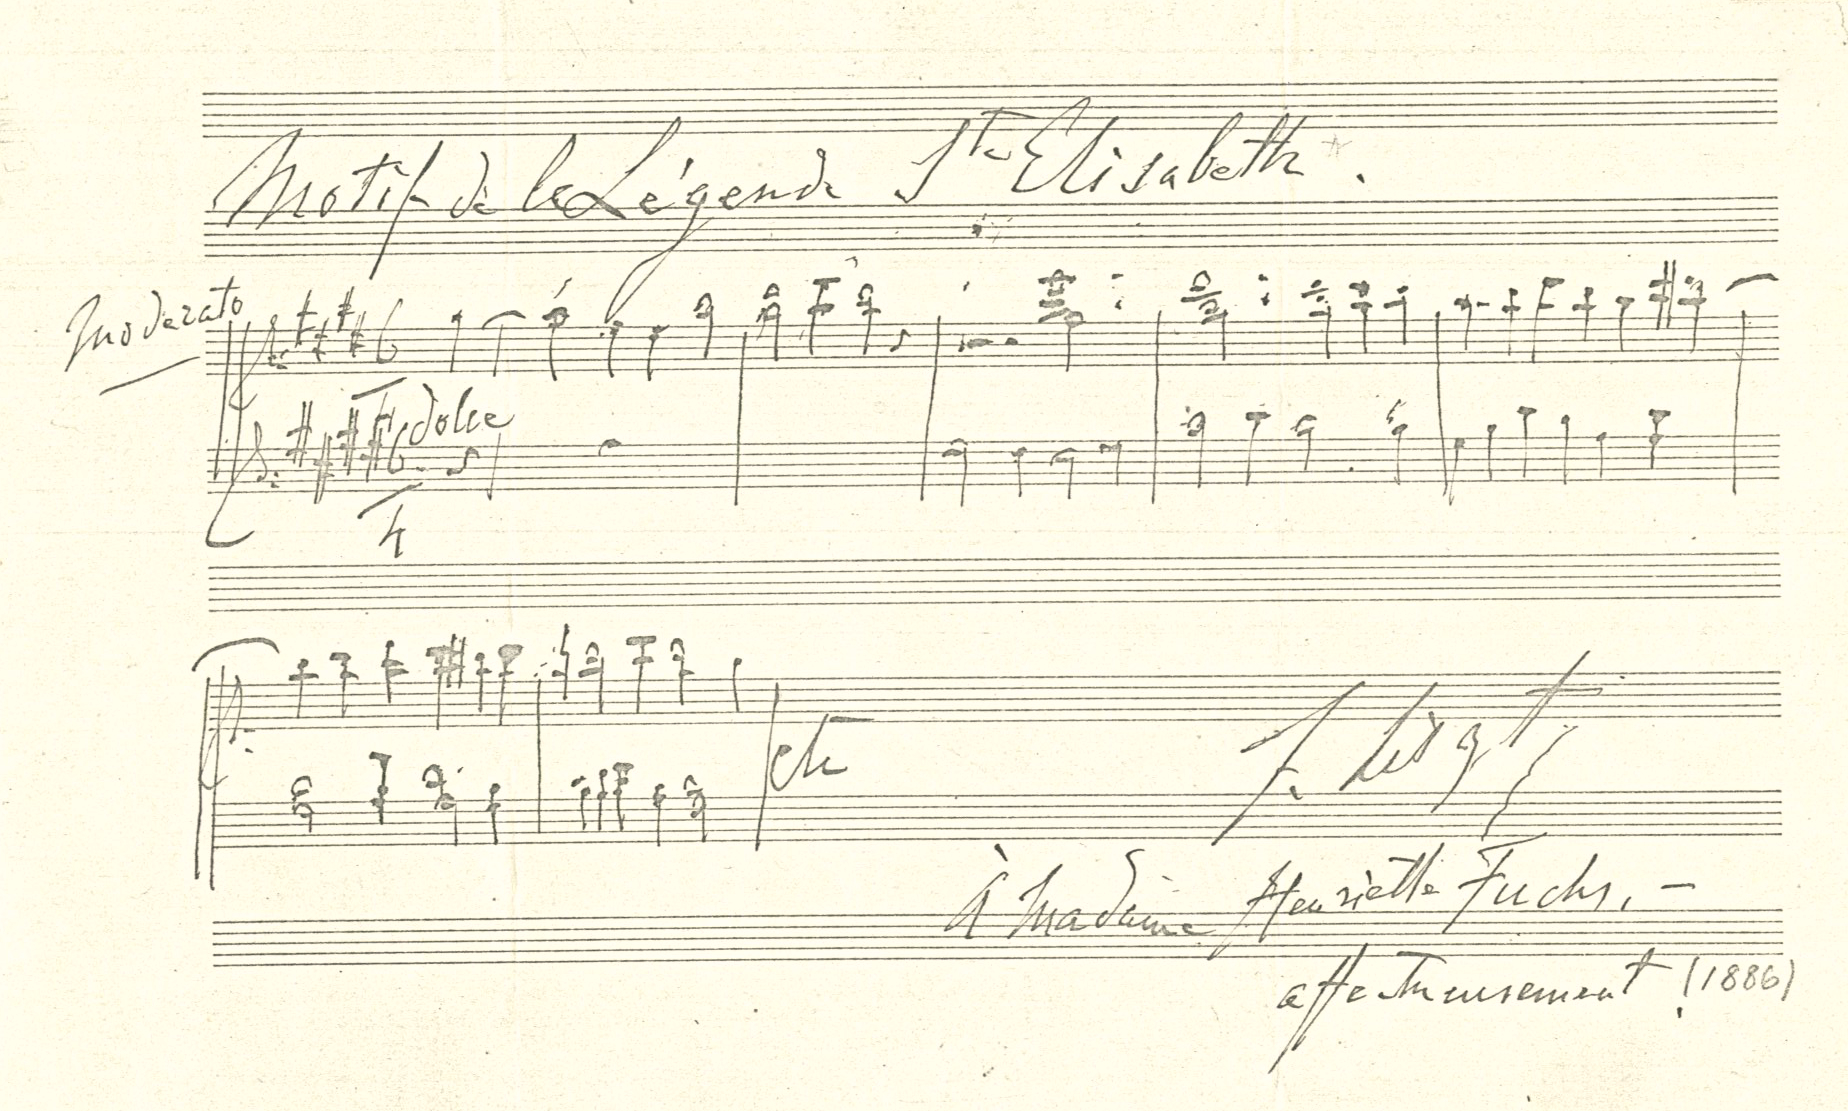 Motif de la Légende Ste Elisabeth.
Moderato
6
4
dolce
6
4
etc
F. Liszt
À Madame Henriette Fuchs, –
affectueusement (1886)